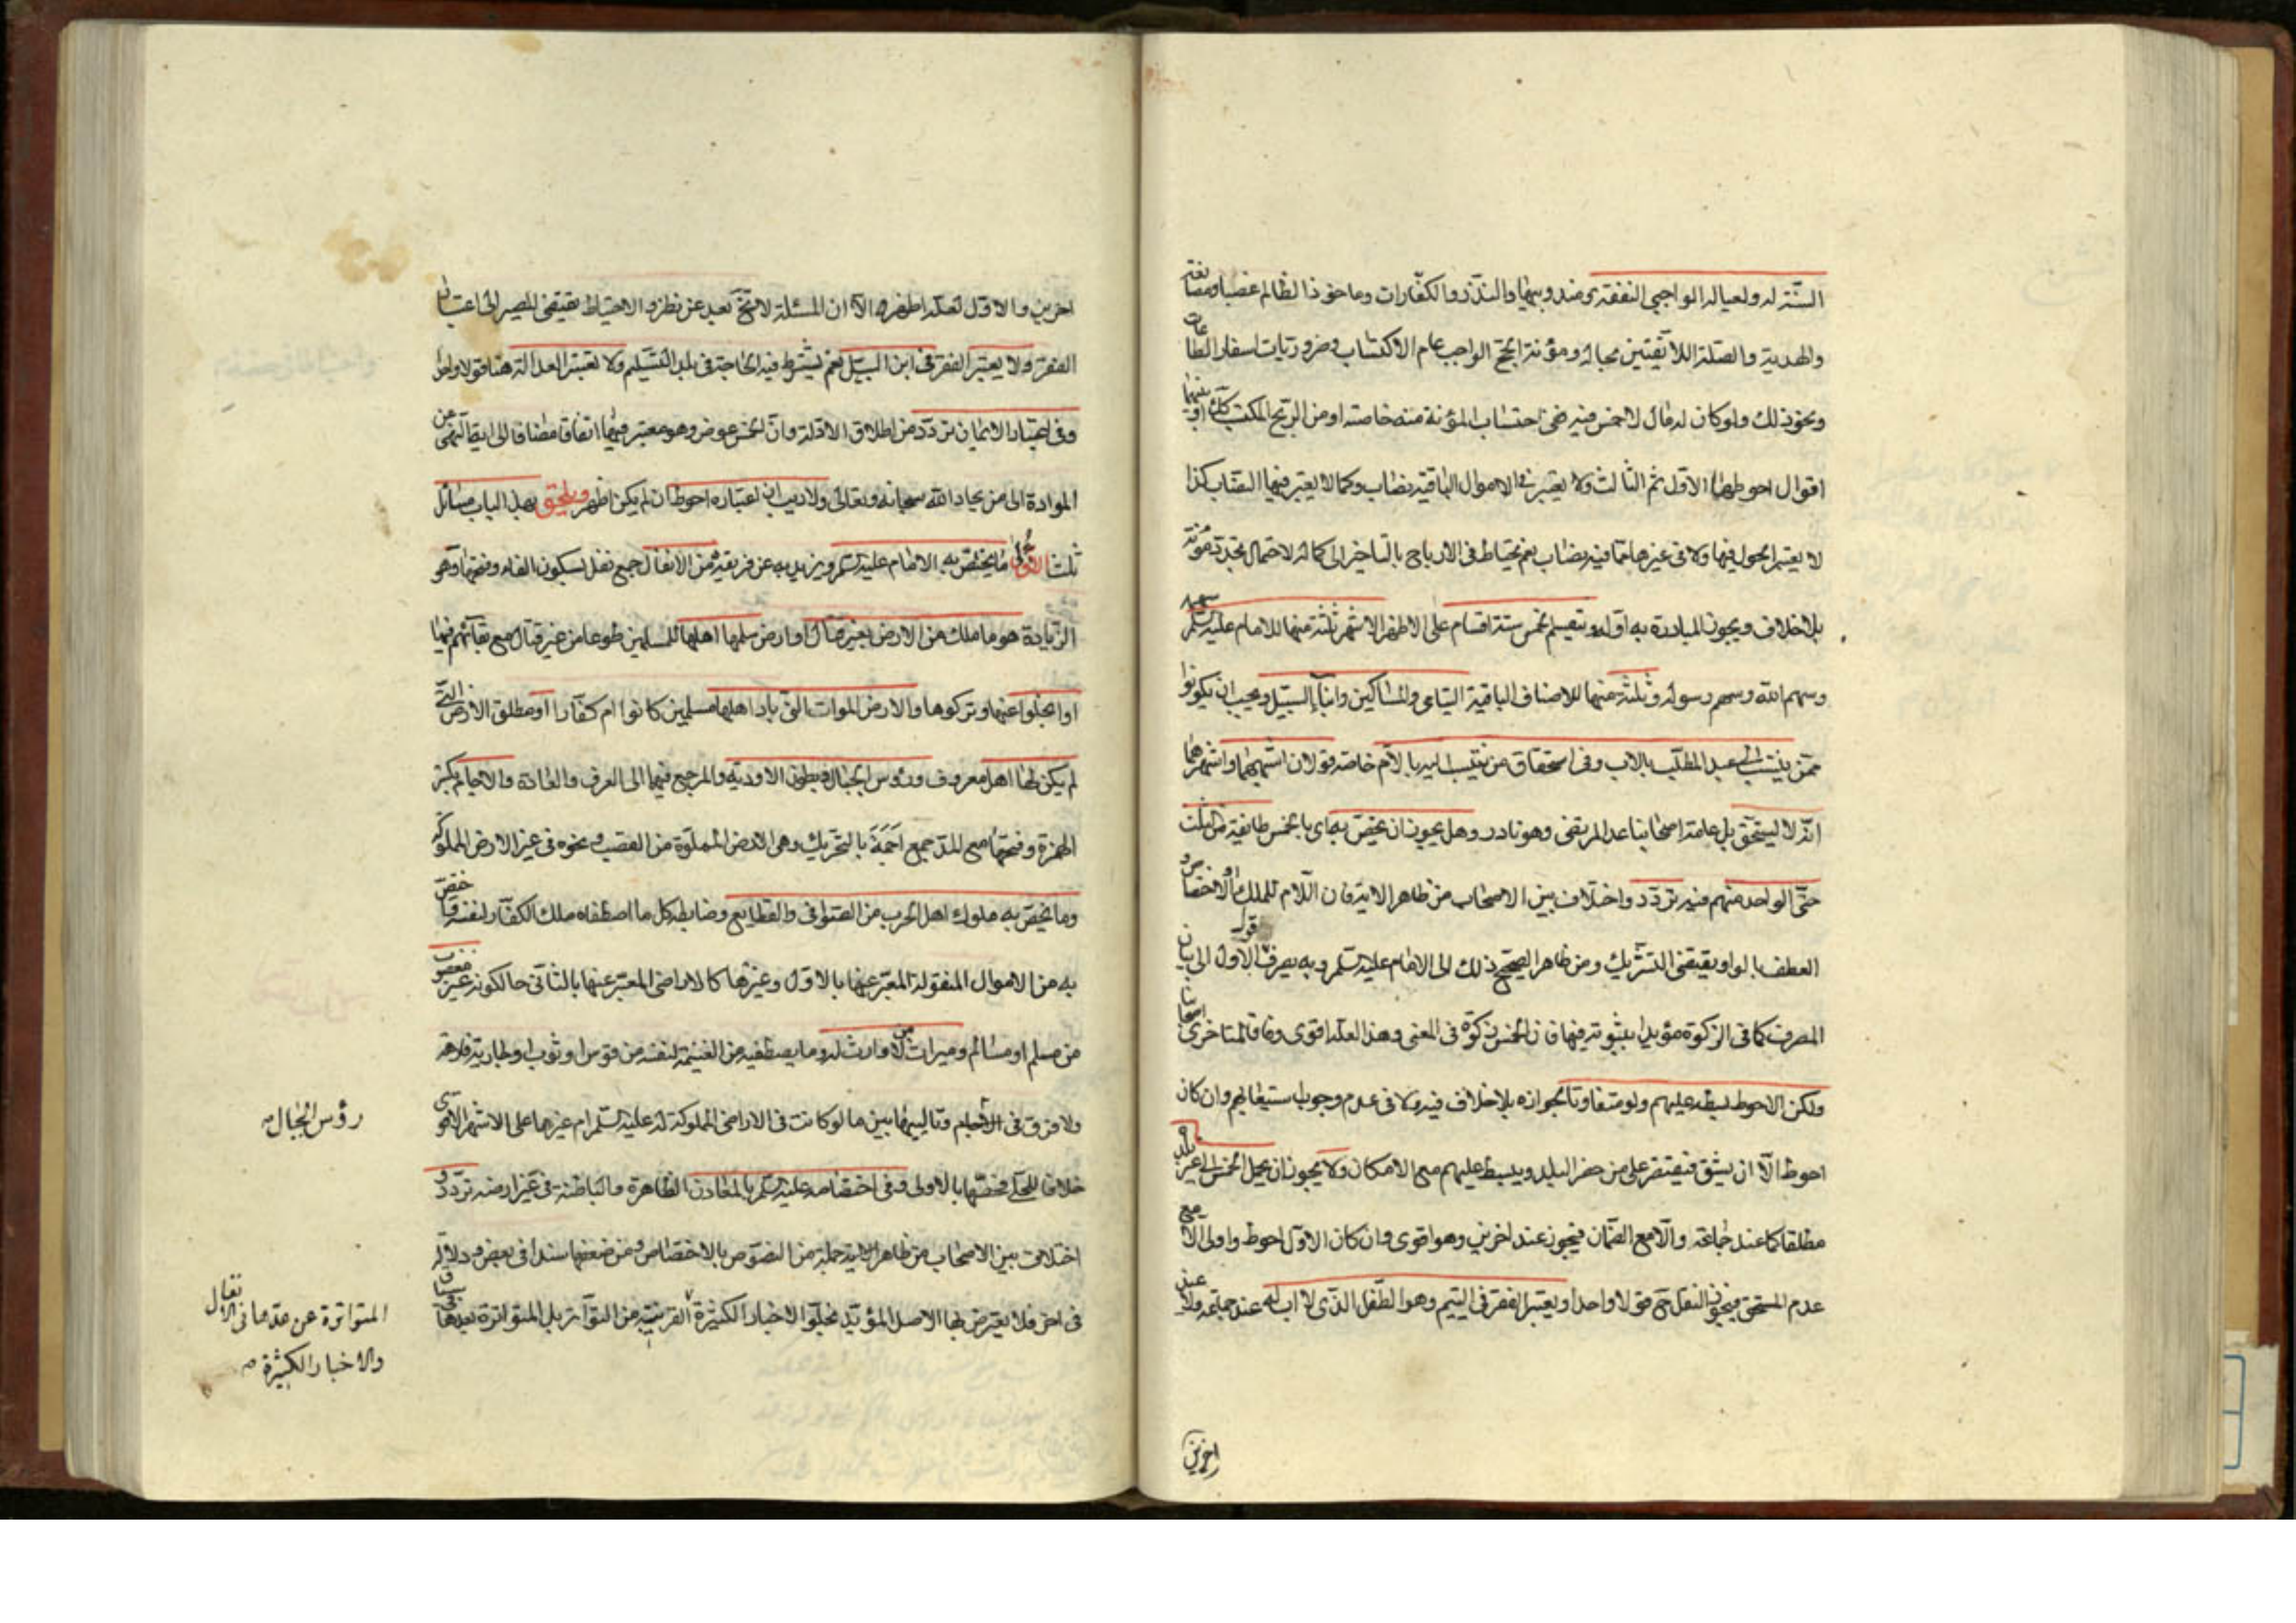 السنة له ولعياله الواجبي النفقة ومندوبيها والنذر والكفارات وماخوذ الظالم غصبا ومصانعة
والهدية والصلة اللائقتين بحاله ومؤنة الحج الواجب عام الاكتساب وضروريات اسفار الطاعات
ونحو ذلك ولو كان له مال لا خمس فيه ففي احتساب المؤنة منه خاصة او من الربح المكتسب كك او بينهما
اقوال احوطها الاول ثم الثالث ولا يعتبر في الاموال الباقية نصاب وكما لا يعتبر فيها النصاب كذا
لا يعتبر الحول فيها ولا في غيرها مما فيه نصاب نعم يحتاط في الارباح بالتاخير الى كماله لاحتمال تجدد مؤنة
بلا خلاف ويجوز المبادرة به اولا ويقسم الخمس ستة اقسام على الاظهر الاشهر ثلثة منها للامام عليه السلم
وسهم الله وسهم رسوله وثلثة منها للاصناف الباقية اليتامى والمساكين وابناء السبيل ويجب ان يكونوا
ممن ينتسب الى عبد المطلب بالاب وفي استحقاق من ينتسب اليه بالام خاصة قولان اشبههما واشهرهما
انه لا يستحق بل عامة اصحابنا عدا المرتضى وهو نادر وهل يجوز ان يخص به اي بالخمس طائفة من الثلث
حتى الواحد منهم فيه تردد واختلاف بين الاصحاب من ظاهر الاية فان اللام للملك او الاختصاص و
العطف بالواو يقتضي التشريك ومن ظاهر الصحيح ذلك الى الامام عليه السلم وبه يصرف الاول الى بيان
المصرف كما في الزكوة مؤيدا بثبوته فيها فان الخمس زكوة في المعنى وهذا لعله اقوى وفاقا لمتاخري اصحابنا
ولكن الاحوط بسطه عليهم ولو متفاوتا لجوازه بلا خلاف فيه ولا في عدم وجوب استيعابهم وان كان
احوط الا ان يشق فيقتصر على من حضر البلد ويبسط عليهم مع الامكان ولا يجوز ان يحمل الخمس الى غير بلده
مطلقا كما عند جماعة والا مع الضمان فيجوز عند اخرين وهو اقوى وان كان الاول احوط واولى الا مع
عدم المستحق فيجوز النقل ح قولا واحدا ويعتبر الفقر في اليتيم وهو الطفل الذي لا اب له عند جماعة ولا عند
اخرين
اخرين والاول لعله اظهر الا ان المسئلة لا تخ بعد عن نظر والاحتياط يقتضي المصير الى اعتبار
الفقر ولا يعتبر الفقر في ابن السبيل نعم يشترط فيه الحاجة في بلد التسليم ولا تعتبر العدالة هنا قولا واحدا
وفي اعتبار الايمان تردد من اطلاق الادلة وان الخمس عوض وهو معتبر فيها اتفاقا مضافا الى ايقا النهي عن
الموادة الى من يحاد الله سبحانه وتعالى ولا ريب ان اعتباره احوط ان لم يكن اظهر ويلحق بهذا الباب مسائل
ثلث الاولى ما يختص به الامام عليه السلم ويزيد به عن فريقه من الانفال جمع نفل بسكون الفاء وفتحها وهو
الزيادة هو ما ملك من الارض بغير قتال او ارض سلمها اهلها للمسلمين طوعا من غير قتال مع بقائهم فيها
او انجلوا عنها وتركوها والارض الموات التي باد اهلها مسلمين كانوا ام كفارا او مطلق الارض التي
لم يكن لها اهل معروف ورؤس الجبال وبطون الاودية والمرجع فيها الى العرف والعادة والاجام بكسر
الهمزة وفتحها مع المد جمع اجمة بالتحريك وهي الارض المملوة من القصب ونحوه في غير الارض المملوكة
وما يختص به ملوك اهل الحرب من الصوافي والقطايع وضابطه كل ما اصطفاه ملك الكفار لنفسه واختص
به من الاموال المنقولة المعبر عنها بالاول وغيرها كالاراضي المعبر عنها بالثاني حالكونه غير مغصوب
من مسلم او مسالم وميراث من لا وارث له وما يصطفيه من الغنيمة لنفسه من فرس او ثوب او جارية فارهة
ولا فرق في الاجام وتالييها بين ما لو كانت في الاراضي المملوكة له عليه السلم ام غيرها على الاشهر الاقوى
رؤس الجبال
خلافا للحلي فخصها بالاولى وفي اختصاصه عليه السلم بالمعادن الظاهرة والباطنة في غير ارضه تردد و
اختلاف بين الاصحاب من ظاهر الاية جملة من النصوص بالاختصاص ومن ضعفها سندا في بعض ودلالة
في اخر فلا يعترض بها الاصل المؤيد بخلو الاخبار الكثيرة القريبة من التواتر بل المتواترة بعدها
المتواترة عن عدها في الانفال
والاخبار الكثيرة